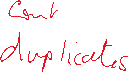 Count
duplicates